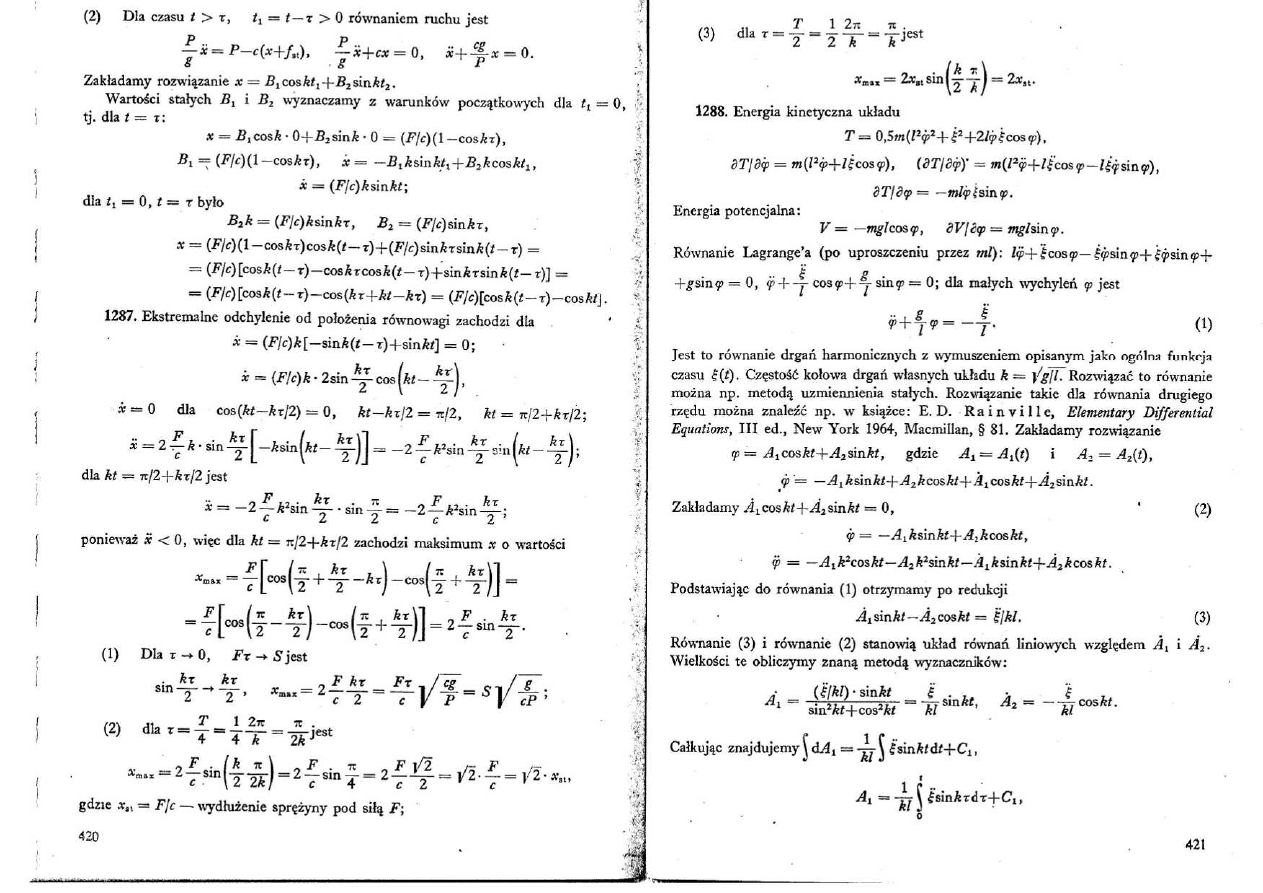 (2) Dla czasu t > τ, t₁ = t−τ > 0 równaniem ruchu jest
P/g ẍ = P−c(x+fₛₜ), P/g ẍ+cx = 0, ẍ+ cg/P x = 0.
Zakładamy rozwiązanie x = B₁coskt₁+B₂sinkt₂.
Wartości stałych B₁ i B₂ wyznaczamy z warunków początkowych dla t₁ = 0,
tj. dla t = τ:
x = B₁cosk · 0+B₂sink · 0 = (F/c)(1−coskτ),
B₁ = (F/c)(1−coskτ), ẋ = −B₁ksinkt₁+B₂kcoskt₁,
ẋ = (F/c)ksinkt;
dla t₁ = 0, t = τ było
B₂k = (F/c)ksinkτ, B₂ = (F/c)sinkτ,
x = (F/c)(1−coskτ)cosk(t−τ)+(F/c)sinkτsink(t−τ) =
= (F/c)[cosk(t−τ)−coskτcosk(t−τ)+sinkτsink(t−τ)] =
= (F/c)[cosk(t−τ)−cos(kτ+kt−kτ) = (F/c)[cosk(t−τ)−coskt].
1287. Ekstremalne odchylenie od położenia równowagi zachodzi dla
ẋ = (F/c)k[−sink(t−τ)+sinkt] = 0;
ẋ = (F/c)k · 2sin kτ/2 cos(kt− kτ/2),
ẋ = 0 dla cos(kt−kτ/2) = 0, kt−kτ/2 = π/2, kt = π/2+kτ/2;
ẍ = 2 F/c k · sin kτ/2 [−ksin(kt− kτ/2)] = −2 F/c k²sin kτ/2 sin(kt− kτ/2);
dla kt = π/2+kτ/2 jest
ẍ = −2 F/c k²sin kτ/2 · sin π/2 = −2 F/c k²sin kτ/2;
ponieważ ẍ < 0, więc dla kt = π/2+kτ/2 zachodzi maksimum x o wartości
xₘₐₓ = F/c [cos(π/2 + kτ/2 −kτ)−cos(π/2 + kτ/2)] =
= F/c [cos(π/2 − kτ/2)−cos(π/2 + kτ/2)] = 2 F/c sin kτ/2.
(1) Dla τ → 0, Fτ → S jest
sin kτ/2 → kτ/2, xₘₐₓ = 2 F/c kτ/2 = Fτ/c √(cg/P) = S√(g/cP);
(2) dla τ = T/4 = 1/4 2π/k = π/2k jest
xₘₐₓ = 2 F/c sin(k/2 π/2k) = 2 F/c sin π/4 = 2 F/c √2/2 = √2 · F/c = √2 · xₛₜ,
gdzie xₛₜ = F/c — wydłużenie sprężyny pod siłą F;
420
(3) dla τ = T/2 = 1/2 2π/k = π/k jest
xₘₐₓ = 2xₛₜ sin(k/2 π/k) = 2xₛₜ.
1288. Energia kinetyczna układu
T = 0,5m(l²φ̇²+ξ̇²+2lφ̇ξ̇cosφ),
∂T/∂φ̇ = m(l²φ̇+lξ̇cosφ), (∂T/∂φ̇)˙ = m(l²φ̈+lξ̈cosφ−lξ̇φ̇sinφ),
∂T/∂φ = −mlφ̇ξ̇sinφ.
Energia potencjalna:
V = −mglcosφ, ∂V/∂φ = mglsinφ.
Równanie Lagrange’a (po uproszczeniu przez ml): lφ̈+ξ̈cosφ−ξ̇φ̇sinφ+ξ̇φ̇sinφ+
+gsinφ = 0, φ̈ + ξ̈/l cosφ+ g/l sinφ = 0; dla małych wychyleń φ jest
φ̈+ g/l φ = − ξ̈/l. (1)
Jest to równanie drgań harmonicznych z wymuszeniem opisanym jako ogólna funkcja
czasu ξ(t). Częstość kołowa drgań własnych układu k = √g/l. Rozwiązać to równanie
można np. metodą uzmiennienia stałych. Rozwiązanie takie dla równania drugiego
rzędu można znaleźć np. w książce: E. D. Rainville, Elementary Differential
Equations, III ed., New York 1964, Macmillan, § 81. Zakładamy rozwiązanie
φ = A₁coskt+A₂sinkt, gdzie A₁ = A₁(t) i A₂ = A₂(t),
φ̇ = −A₁ksinkt+A₂kcoskt+Ȧ₁coskt+Ȧ₂sinkt.
Zakładamy Ȧ₁coskt+Ȧ₂sinkt = 0, (2)
φ̇ = −A₁ksinkt+A₂kcoskt,
φ̈ = −A₁k²coskt−A₂k²sinkt−Ȧ₁ksinkt+Ȧ₂kcoskt.
Podstawiając do równania (1) otrzymamy po redukcji
Ȧ₁sinkt−Ȧ₂coskt = ξ̈/kl. (3)
Równanie (3) i równanie (2) stanowią układ równań liniowych względem Ȧ₁ i Ȧ₂.
Wielkości te obliczymy znaną metodą wyznaczników:
Ȧ₁ = (ξ̈/kl) · sinkt/sin²kt+cos²kt = ξ̈/kl sinkt, Ȧ₂ = − ξ̈/kl coskt.
Całkując znajdujemy ∫ dA₁ = 1/kl ∫ ξ̈sinktdt+C₁,
A₁ = 1/kl ∫₀ᵗ ξ̈sinkτdτ+C₁,
421